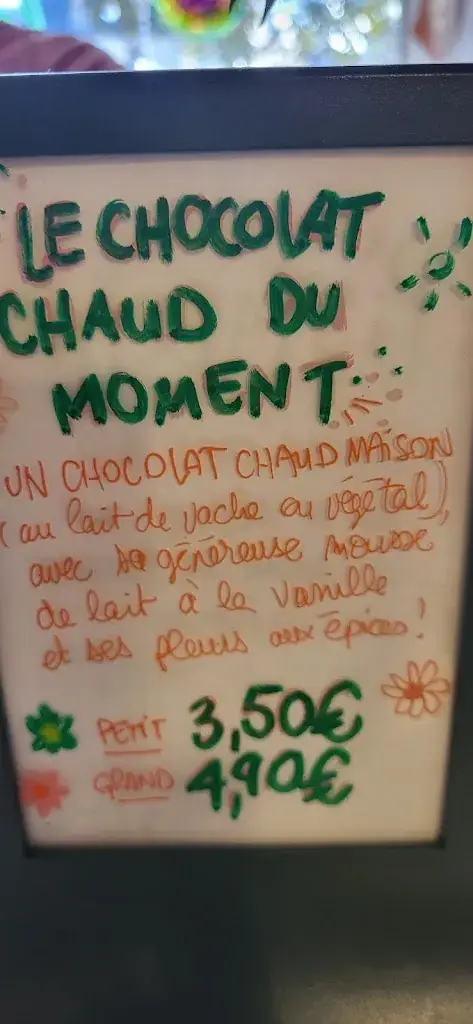 LE CHOCOLAT
CHAUD DU
MOMENT
UN CHOCOLAT CHAUD MAISON
(au lait de vache ou végétal),
avec sa généreuse mousse
de lait à la vanille
et ses fleurs aux épices !
PETIT 3,50€
GRAND 4,90€